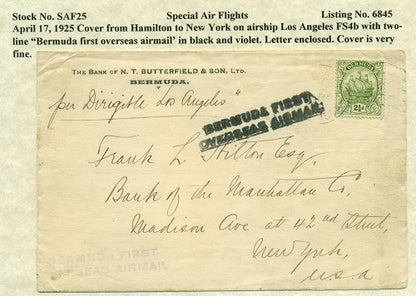 Stock No. SAF25 Special Air Flights Listing No. 6845
April 17, 1925 Cover from Hamilton to New York on airship Los Angeles FS4b with two-
line “Bermuda first overseas airmail’ in black and violet. Letter enclosed. Cover is very
fine.
THE BANK OF N. T. BUTTERFIELD & SON, LTD.
BERMUDA.
per Dirigible Los Angeles"
BERMUDA FIRST
OVERSEAS AIRMAIL
BERMUDA
2½d
Frank L Hilton Esq,
Bank of the Manhattan Co,
Madison Ave at 42nd Street,
New York,
U.S.A
BERMUDA FIRST
OVERSEAS AIRMAIL